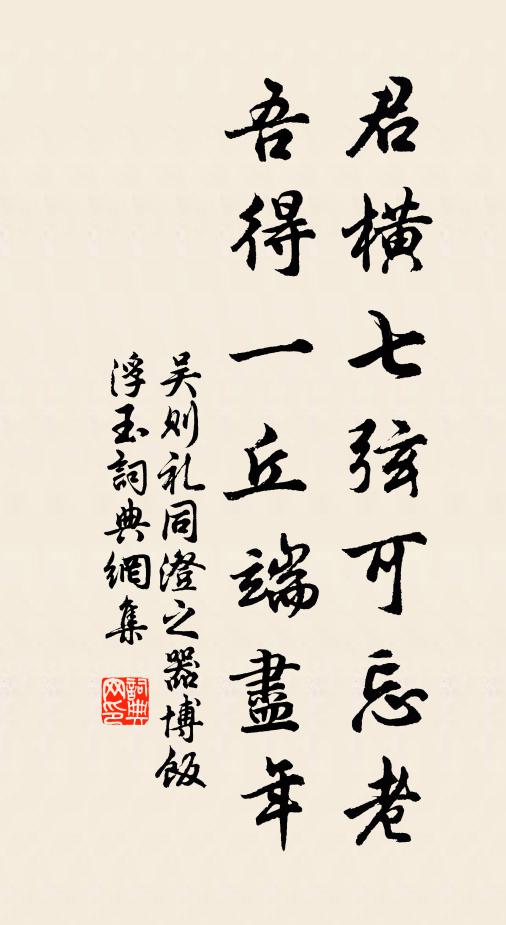 君橫七弦可忘老
吾得一丘端盡年
吴则礼同澄之器博飯
浮玉詞典網集
詞典
网印